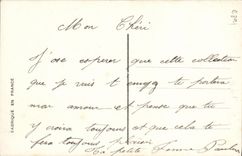 Mon Chéri
J'ose esperer que cette collection
que je suis t envoyer te portera
mon amour et pense que tu
y croira toujours et que cela te
fera toujours plaisir
Ta petite Femme Paulette
FABRIQUÉ EN FRANCE